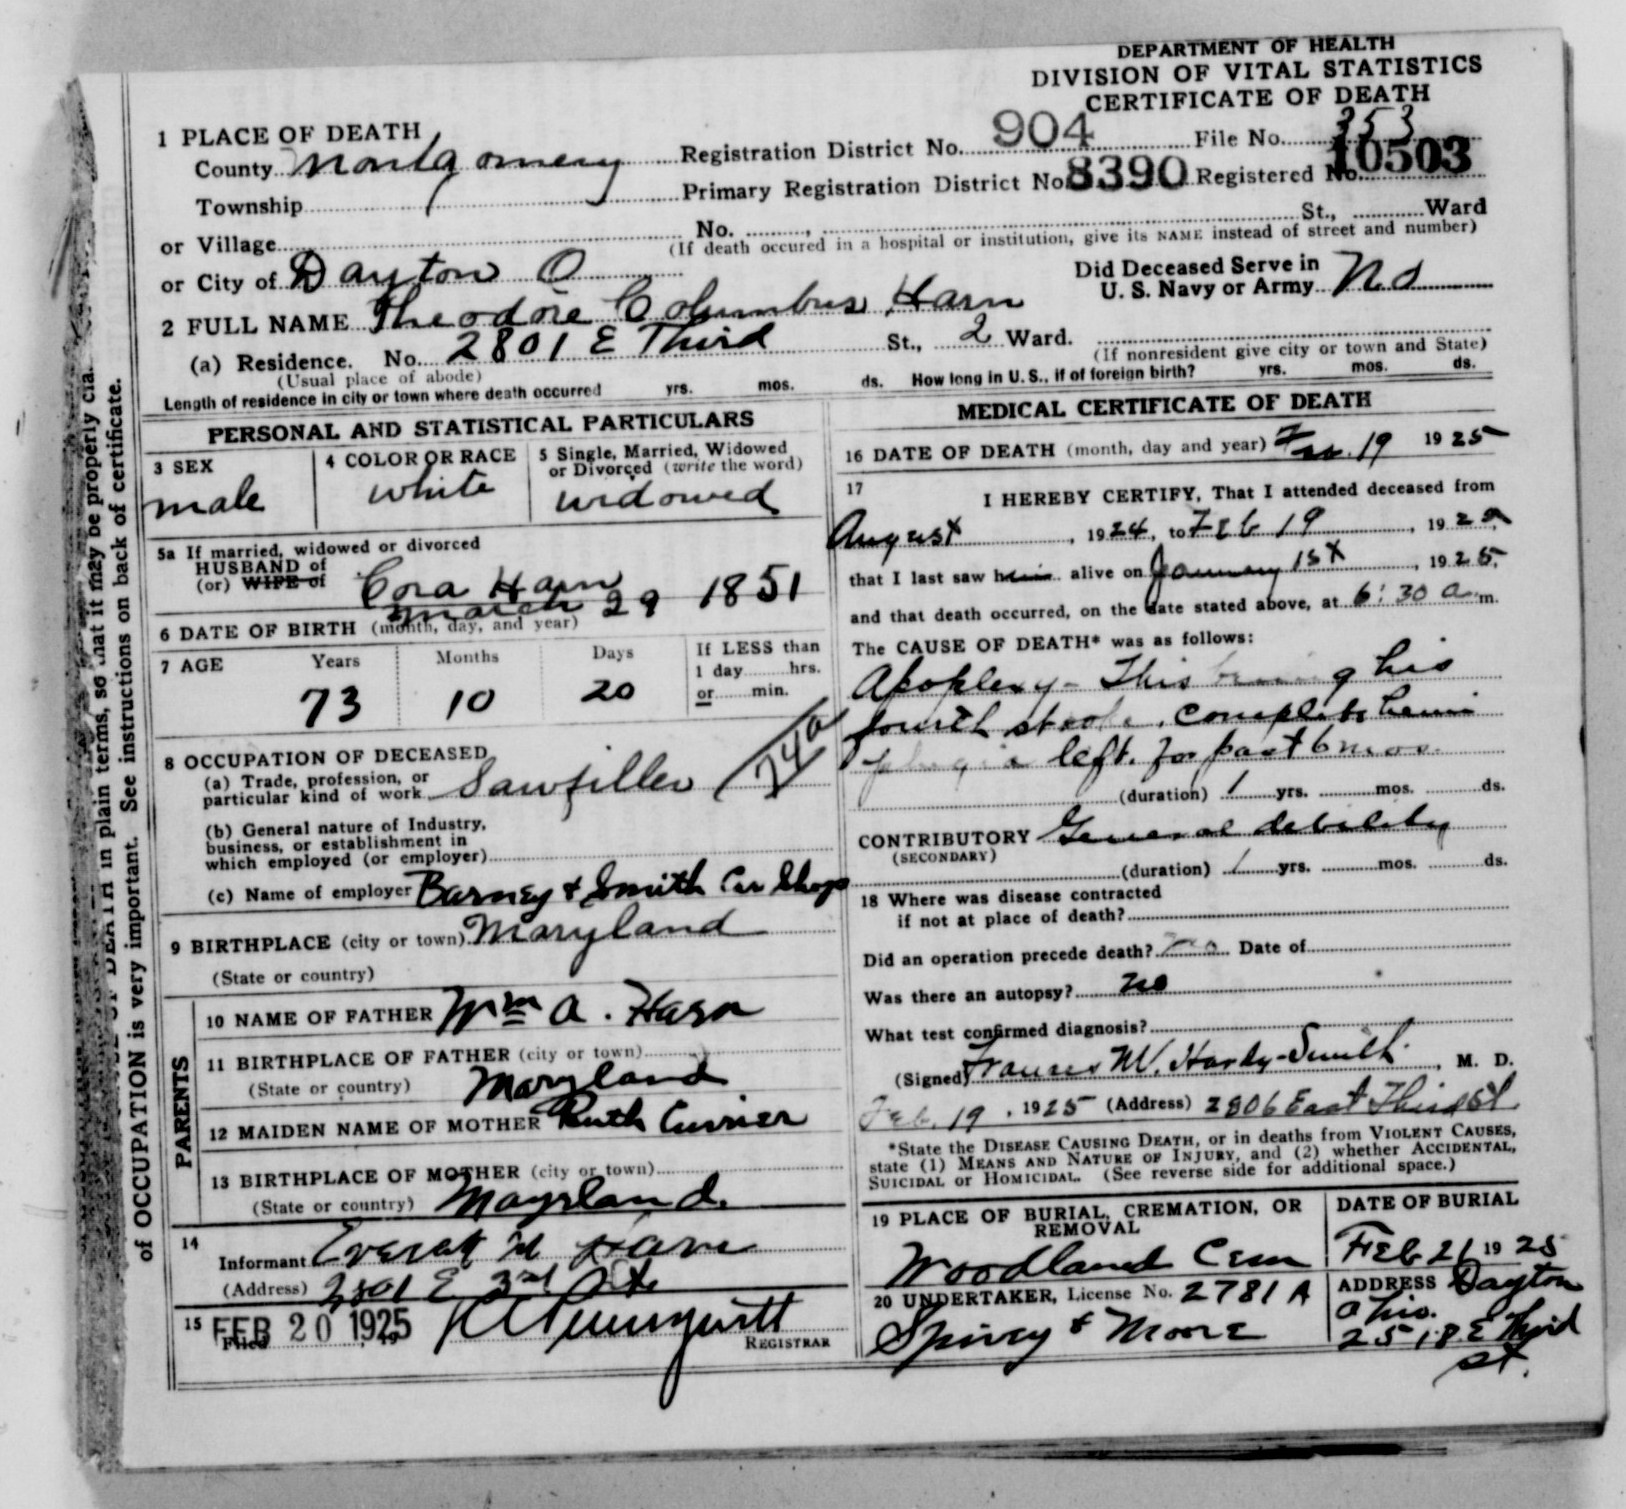 DEPARTMENT OF HEALTH
DIVISION OF VITAL STATISTICS
CERTIFICATE OF DEATH
1 PLACE OF DEATH
County Montgomery Registration District No. 904 File No. 353
Township Primary Registration District No. 8390 Registered No. 10503
or Village No. , St., Ward
(If death occured in a hospital or institution, give its NAME instead of street and number)
or City of Dayton O Did Deceased Serve in U. S. Navy or Army No
2 FULL NAME Theodore Columbus Harn
(a) Residence. No. 2801 E Third St., 2 Ward.
(Usual place of abode) (If nonresident give city or town and State)
Length of residence in city or town where death occurred yrs. mos. ds. How long in U. S., if of foreign birth? yrs. mos. ds.
PERSONAL AND STATISTICAL PARTICULARS
3 SEX
male
4 COLOR OR RACE
white
5 Single, Married, Widowed
or Divorced (write the word)
widowed
5a If married, widowed or divorced
HUSBAND of
(or) WIFE of Cora Harn
6 DATE OF BIRTH (month, day, and year) March 29 1851
7 AGE Years Months Days If LESS than
1 day hrs.
or min.
73 10 20
8 OCCUPATION OF DECEASED
(a) Trade, profession, or
particular kind of work Sawfiller 74a
(b) General nature of Industry,
business, or establishment in
which employed (or employer)
(c) Name of employer Barney & Smith Car Shops
9 BIRTHPLACE (city or town) Maryland
(State or country)
PARENTS
10 NAME OF FATHER Wm A. Harn
11 BIRTHPLACE OF FATHER (city or town)
(State or country) Maryland
12 MAIDEN NAME OF MOTHER Ruth Currier
13 BIRTHPLACE OF MOTHER (city or town)
(State or country) Mayrland.
14
Informant Harn
(Address) 2801 E 3rd St.
15 FEB 20 1925
Filed
REGISTRAR
MEDICAL CERTIFICATE OF DEATH
16 DATE OF DEATH (month, day and year) Feb. 19 1925
17 I HEREBY CERTIFY, That I attended deceased from
August , 1924, to Feb 19 , 192
that I last saw him alive on January 1st , 1925,
and that death occurred, on the date stated above, at 6:30 a m.
The CAUSE OF DEATH* was as follows:
Apoplexy - This being his
fourth stroke. complete hemi
plegia left. for past 6 mos.
(duration) 1 yrs. mos. ds.
CONTRIBUTORY General debility
(SECONDARY)
(duration) 1 yrs. mos. ds.
18 Where was disease contracted
if not at place of death?
Did an operation precede death? no Date of
Was there an autopsy? no
What test confirmed diagnosis?
(Signed) Frances W. Hardy-Smith , M. D.
Feb. 19 , 1925 (Address) 2806 East Third St
*State the DISEASE CAUSING DEATH, or in deaths from VIOLENT CAUSES,
state (1) MEANS AND NATURE OF INJURY, and (2) whether ACCIDENTAL,
SUICIDAL or HOMICIDAL. (See reverse side for additional space.)
19 PLACE OF BURIAL, CREMATION, OR
REMOVAL
Woodland Cem
DATE OF BURIAL
Feb 21 1925
20 UNDERTAKER, License No. 2781 A
Spivey & Moore
ADDRESS Dayton
Ohio.
2518 E Third
St.
OF DEATH in plain terms, so that it may be properly cla
of OCCUPATION is very important. See instructions on back of certificate.